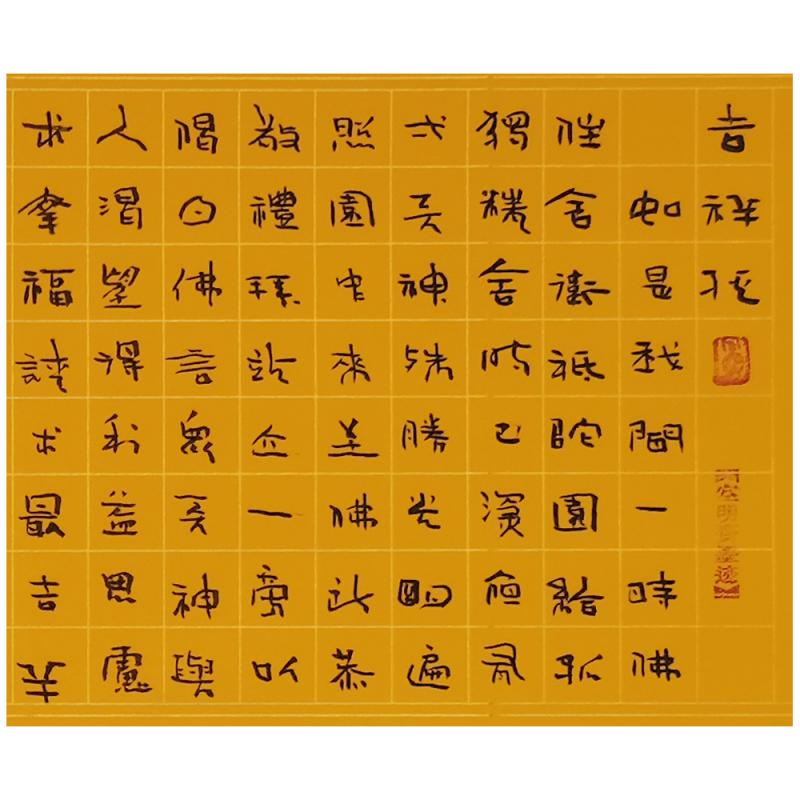 吉祥經
如是我聞一時佛
住舍衛祇陀園給孤
獨精舍時已深夜有
弌天神殊勝光明遍
照園中來至佛所恭
敬禮拜站立一旁以
偈白佛言眾天神與
人渴望得利益思慮
求幸福請求最吉祥